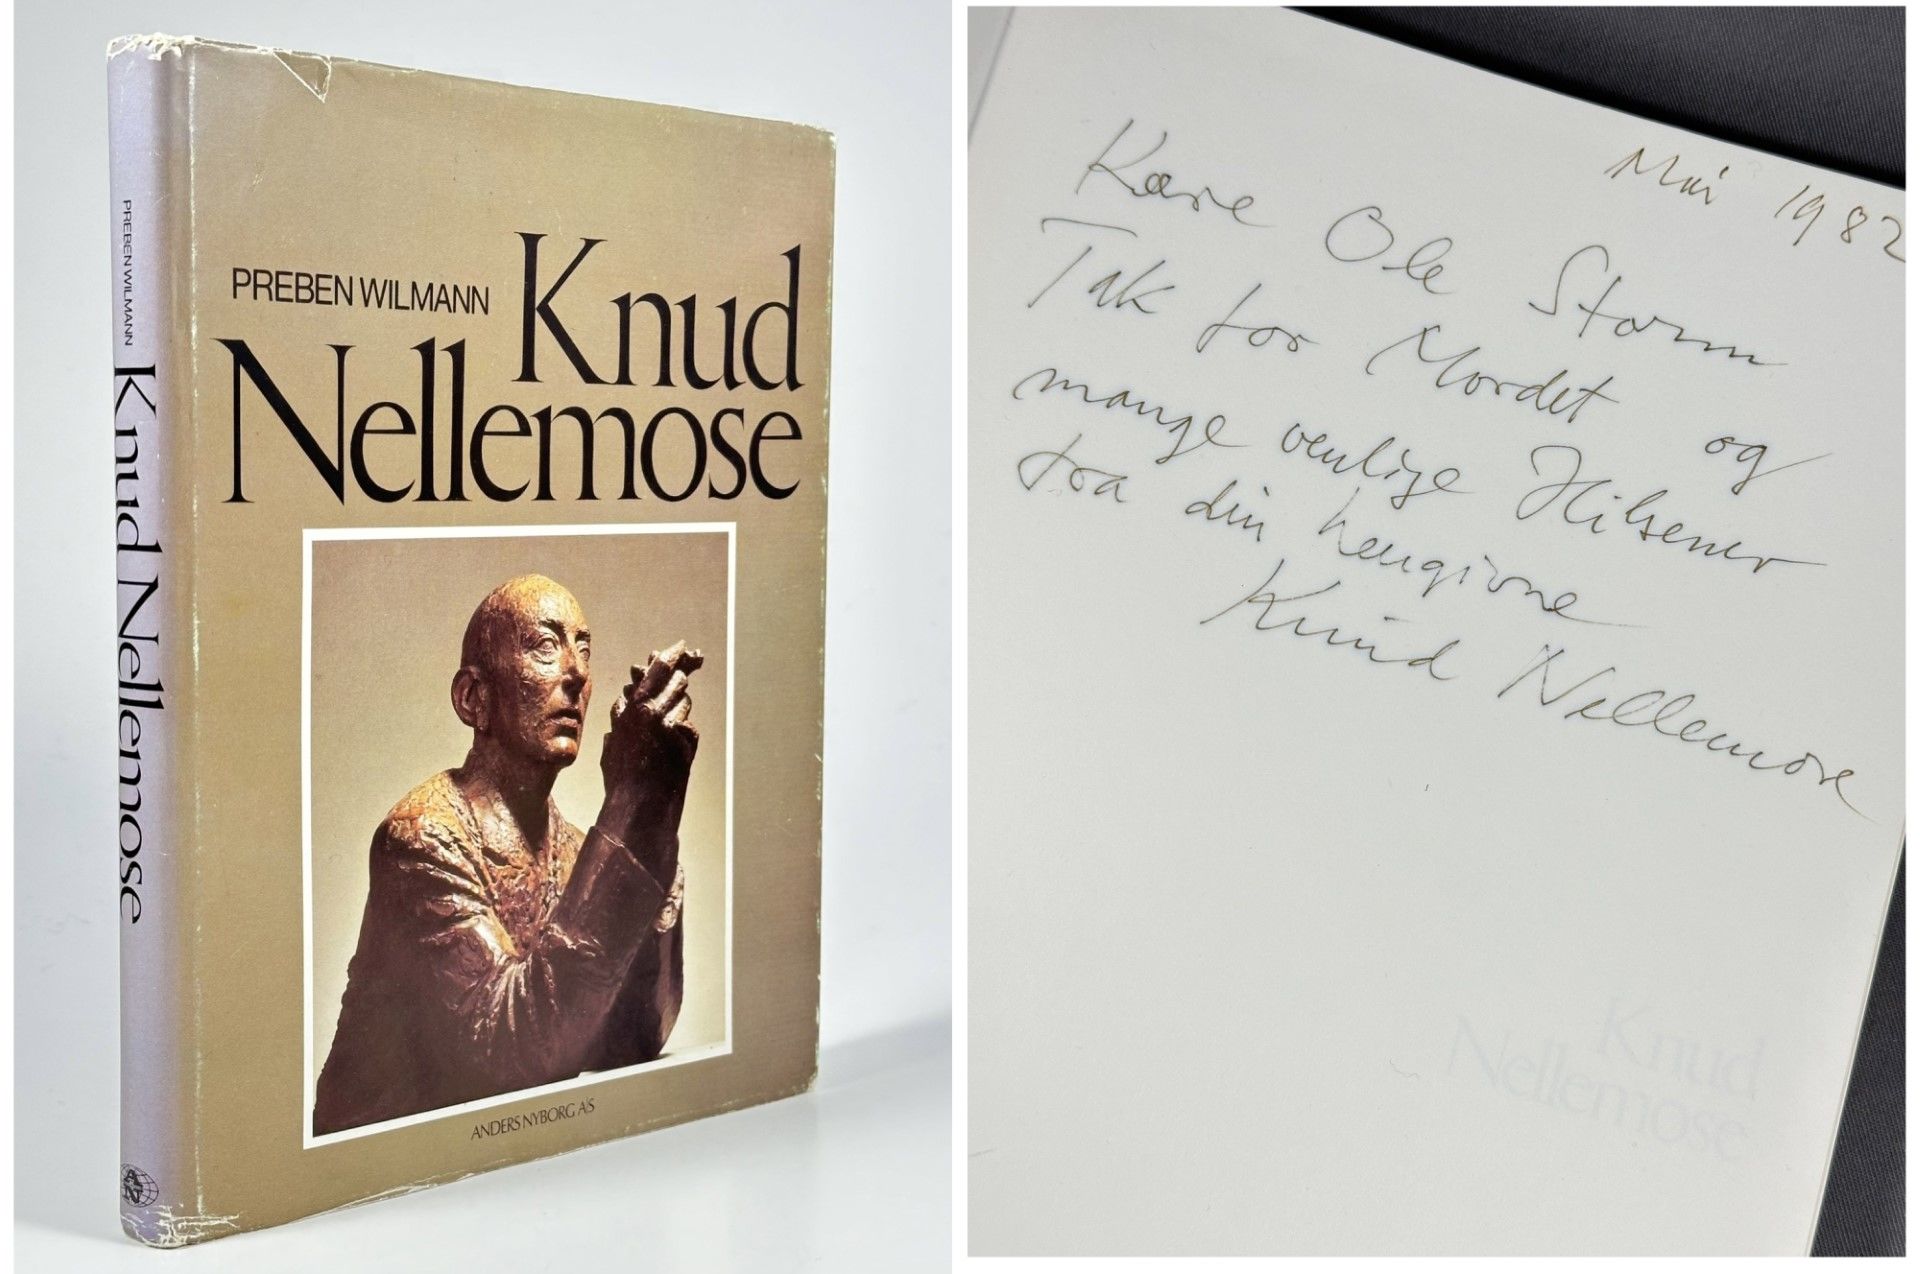 PREBEN WILMANN Knud Nellemose
AN
PREBEN WILMANN Knud
Nellemose
ANDERS NYBORG A/S
Mai 1982
Kære Ole Storm
Tak for Mordet og
mange venlige Hilsener
fra din hengivne
Knud Nellemose
Knud
Nellemose